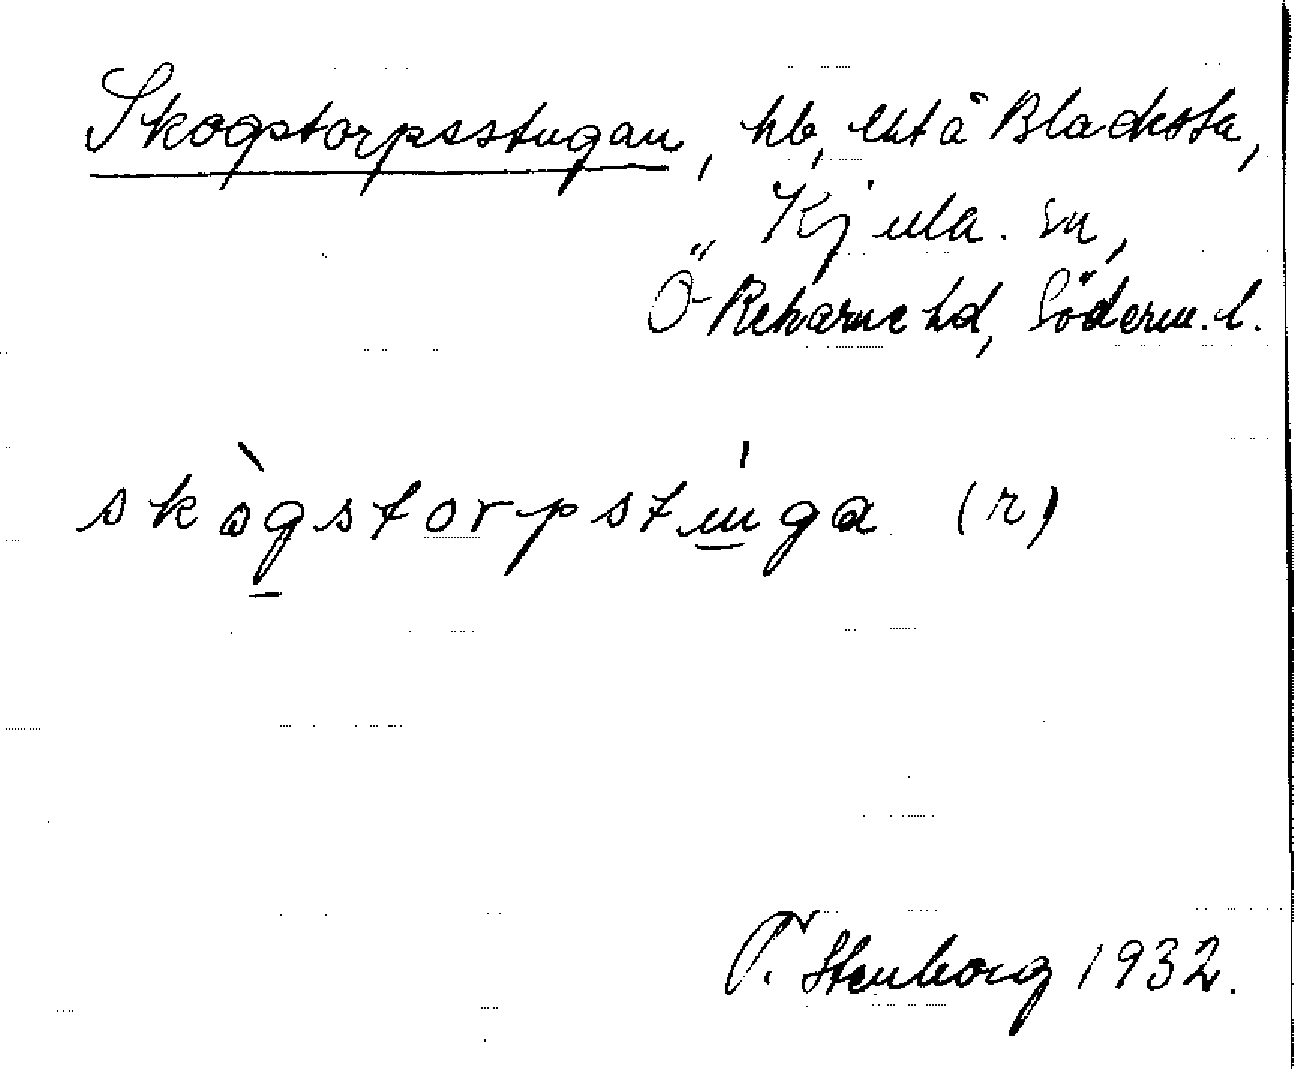 Skogstorpsstugan, hb, lht å Blacksta,
Kjula sn,
Ö Rekarne hd, Söderm. l.
skògstorpstúga (r)
T. Stenborg 1932.